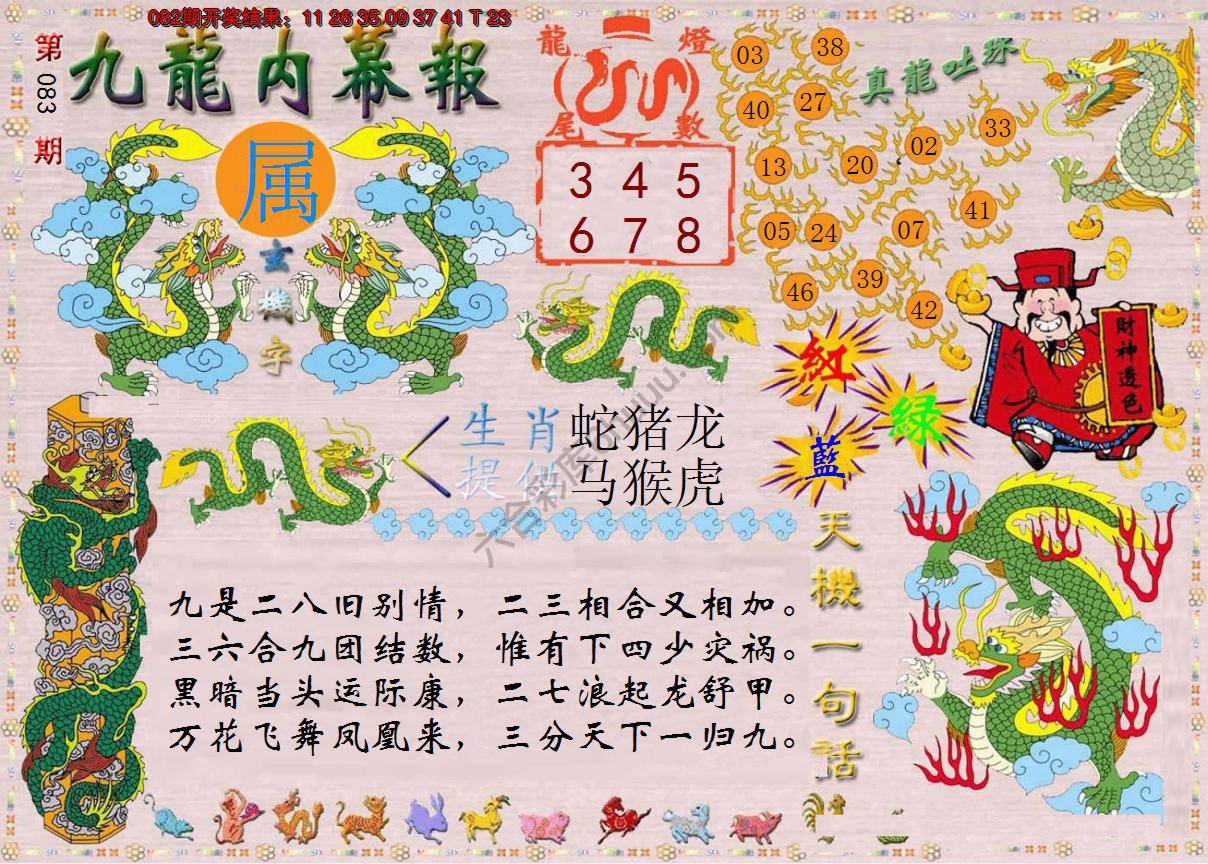 082期开奖结果：11 26 35.09 37 41 T 23
第083期
九龍内幕報
属
玄機字
龍燈尾數
3 4 5
6 7 8
真龍吐珠
03 38
40 27
13 20 02 33
05 24 07 41
46 39 42
財神透色
紅
綠
藍
生肖
提供
蛇猪龙
马猴虎
天機一句話
九是二八旧别情，二三相合又相加。
三六合九团结数，惟有下四少灾祸。
黑暗当头运际康，二七浪起龙舒甲。
万花飞舞凤凰来，三分天下一归九。